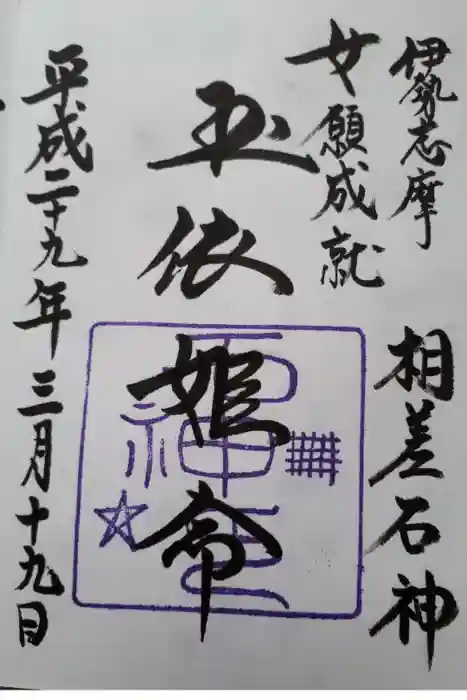 伊勢志摩
相差石神
女願成就
玉依姫命
平成二十九年三月十九日